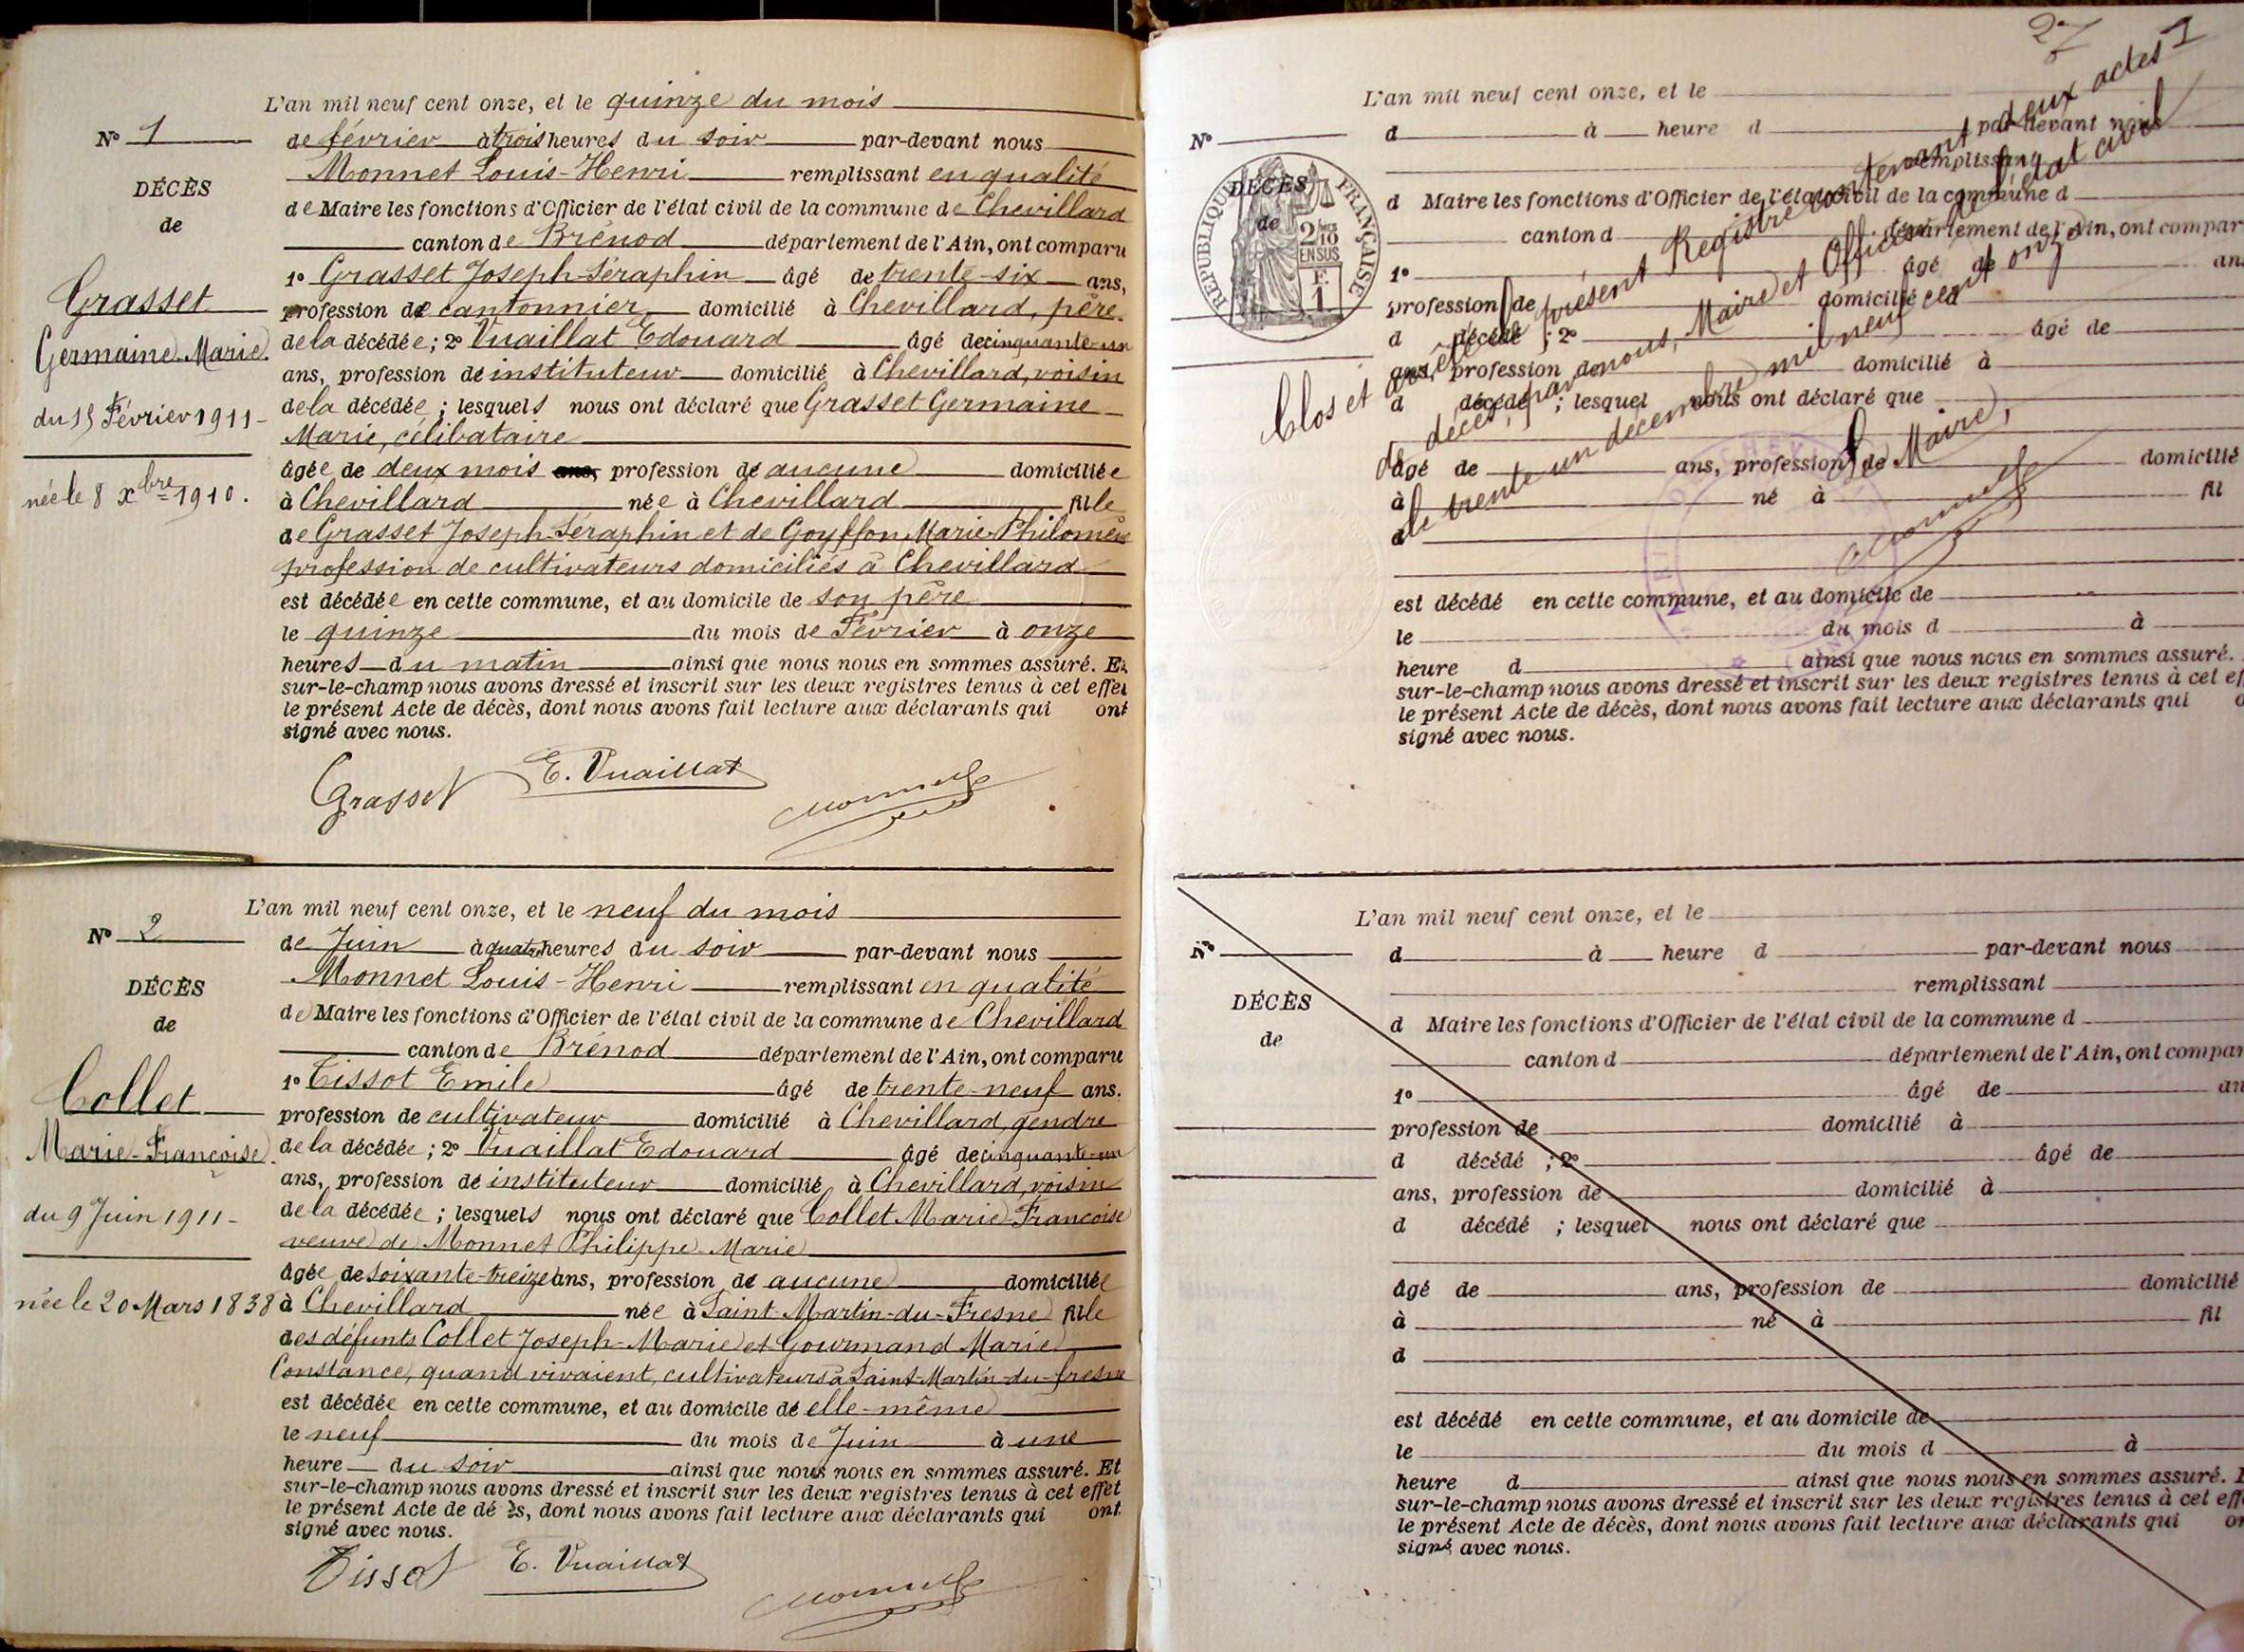 L'an mil neuf cent onze, et le quinze du mois
N° 1
de février à trois heures du soir par-devant nous
Monnet Louis-Henri remplissant en qualité
DÉCÈS
de Maire les fonctions d'Officier de l'état civil de la commune de Chevillard
de
canton de Brénod département de l'Ain, ont comparu
1° Grasset Joseph-Séraphin âgé de trente-six ans,
Grasset
profession de cantonnier domicilié à Chevillard, père
Germaine-Marie
de la décédée ; 2° Vuaillat Edouard âgé de cinquante-un
ans, profession de instituteur domicilié à Chevillard, voisin
de la décédée ; lesquels nous ont déclaré que Grasset Germaine
du 15 Février 1911
Marie, célibataire
âgée de deux mois ans, profession de aucune domiciliée
née le 8 xbre 1910.
à Chevillard née à Chevillard fille
de Grasset Joseph-Séraphin et de Goyffon Marie-Philomène
profession de cultivateurs domiciliés à Chevillard
est décédée en cette commune, et au domicile de son père
le quinze du mois de Février à onze
heures du matin ainsi que nous nous en sommes assuré. Et
sur-le-champ nous avons dressé et inscrit sur les deux registres tenus à cet effet
le présent Acte de décès, dont nous avons fait lecture aux déclarants qui ont
signé avec nous.
Grasset E. Vuaillat Monnet
L'an mil neuf cent onze, et le neuf du mois
N° 2
de Juin à quatre heures du soir par-devant nous
Monnet Louis-Henri remplissant en qualité
DÉCÈS
de Maire les fonctions d'Officier de l'état civil de la commune de Chevillard
de
canton de Brénod département de l'Ain, ont comparu
1° Tissot Emile âgé de trente-neuf ans.
Collet
profession de cultivateur domicilié à Chevillard, gendre
Marie-Françoise
de la décédée ; 2° Vuaillat Edouard âgé de cinquante-un
ans, profession de instituteur domicilié à Chevillard, voisin
du 9 Juin 1911
de la décédée ; lesquels nous ont déclaré que Collet Marie Françoise
veuve de Monnet Philippe-Marie
âgée de soixante-treize ans, profession de aucune domiciliée
née le 20 Mars 1838
à Chevillard née à Saint-Martin-du-Fresne fille
des défunts Collet Joseph-Marie et Gourmand Marie
Constance, quand vivaient, cultivateurs à Saint-Martin-du-fresne
est décédée en cette commune, et au domicile de elle-même
le neuf du mois de Juin à une
heure du soir ainsi que nous nous en sommes assuré. Et
sur-le-champ nous avons dressé et inscrit sur les deux registres tenus à cet effet
le présent Acte de décès, dont nous avons fait lecture aux déclarants qui ont
signé avec nous.
Tissot E. Vuaillat Monnet
L'an mil neuf cent onze, et le
N°
d à heure d par-devant nous
remplissant
DÉCÈS
d Maire les fonctions d'Officier de l'état civil de la commune d
de
canton d département de l'Ain, ont compar
1° âgé de an
profession de domicilié à
d décédé ; 2° âgé de
ans, profession de domicilié à
d décédé ; lesquel nous ont déclaré que
âgé de ans, profession de domicilié
à né à fil
d
est décédé en cette commune, et au domicile de
le du mois d à
heure d ainsi que nous nous en sommes assuré.
sur-le-champ nous avons dressé et inscrit sur les deux registres tenus à cet eff
le présent Acte de décès, dont nous avons fait lecture aux déclarants qui o
signé avec nous.
RÉPUBLIQUE FRANÇAISE
2/10
EN SUS
F.
1
Clos et arrêté le présent Registre contenant deux actes
de décès, par nous, Maire et Officier de l'état civil
le trente un décembre mil neuf cent onze
Le Maire,
Monnet
L'an mil neuf cent onze, et le
N°
d à heure d par-devant nous
remplissant
DÉCÈS
d Maire les fonctions d'Officier de l'état civil de la commune d
de
canton d département de l'Ain, ont compar
1° âgé de an
profession de domicilié à
d décédé ; 2° âgé de
ans, profession de domicilié à
d décédé ; lesquel nous ont déclaré que
âgé de ans, profession de domicilié
à né à fil
d
est décédé en cette commune, et au domicile de
le du mois d à
heure d ainsi que nous nous en sommes assuré.
sur-le-champ nous avons dressé et inscrit sur les deux registres tenus à cet effe
le présent Acte de décès, dont nous avons fait lecture aux déclarants qui on
signé avec nous.